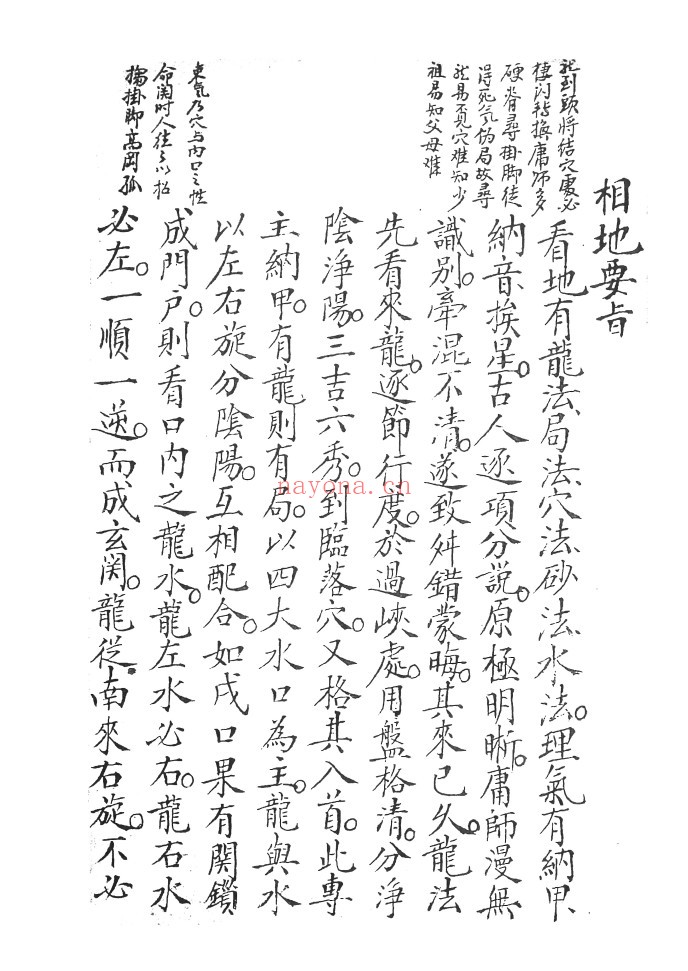 相地要旨
龍到頭將結穴處必
棲閃轉換庸師多
硬脊尋掛脚徒
得死气伪局故尋
龍易覓穴難知少
祖易知父母難
看地有龍法局法穴法砂法水法。理氣有納甲
納音挨星。古人逐項分説。原極明晰。庸師漫無
識别。牽混不清。遂致舛錯蒙晦。其來已久。龍法
先看來龍。逐節行度。於過峽處。用盤格清。分淨
陰淨陽。三吉六秀。到臨落穴。又格其入首。此專
主納甲。有龍則有局。以四大水口為主。龍與水
以左右旋分陰陽。互相配合。如戌口果有関鎖
成門户。則看口内之龍水。龍左水必右。龍右水
必左。一順一逆。而成玄関。龍從南來右旋。不必
來氣乃穴与内口之性
命関时人往々以招
搖掛脚高岡孤
nayona.cn